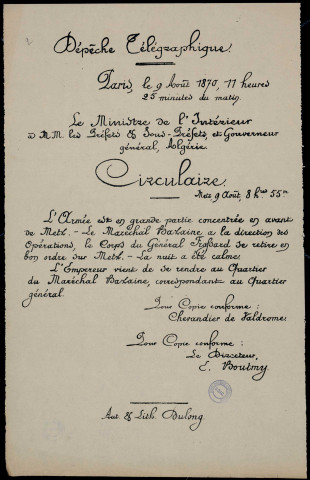 Dépêche Télégraphique.
Paris, le 9 Août 1870, 11 heures
25 minutes du matin.
Le Ministre de l'Intérieur
à M.M. les Préfets & Sous-Préfets, et Gouverneur
général, Algérie.
Circulaire
Metz 9 Août, 8 hres 55m
L'Armée est en grande partie concentrée en avant
de Metz. - Le Maréchal Bazaine a la direction des
Opérations, le Corps du Général Frossard se retire en
bon ordre sur Metz. - La nuit a été calme.
L'Empereur vient de se rendre au Quartier
du Maréchal Bazaine, correspondant au Quartier
général.
Pour Copie conforme :
Chevandier de Valdrome.
Pour Copie conforme :
Le Directeur,
E. Boutmy
Aut. & Lith. Dulong.